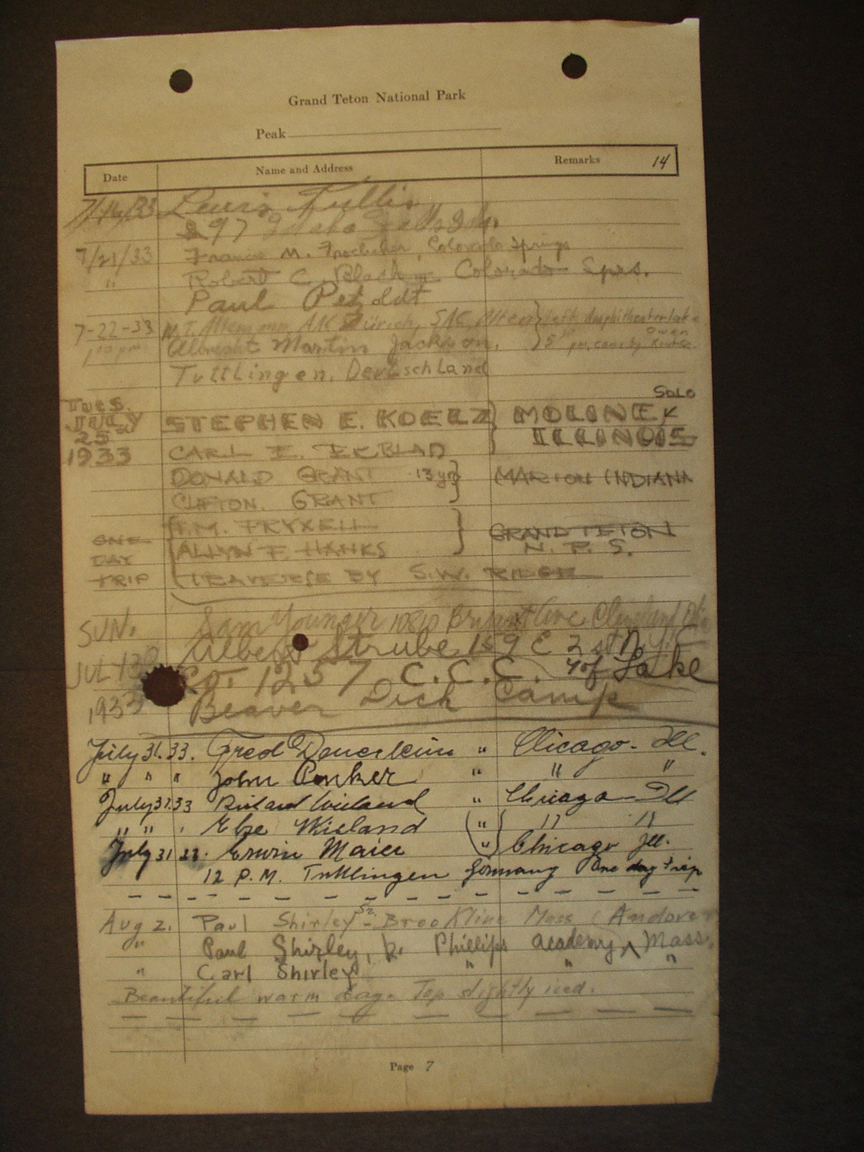 Grand Teton National Park
Peak
Date Name and Address Remarks 14
7/ /33 Lewis
297 Idaho Falls Ida.
7/21/33 Francis M. Colorado Springs
" Robert C. Colorado Sprs.
Paul Petzoldt
7-22-33
Albrecht Martin Jackson,
Tuttlingen, Deutschland
SOLO
TUES. JULY 25 1933
STEPHEN E. KOELZ MOLINE, ILLINOIS
CARL E. EKBLAD
DONALD GRANT 13 yrs MARION INDIANA
CLIFTON. GRANT
F.M. FRYXELL GRAND TETON
ONE DAY TRIP
ALLYN F. HANKS N. P. S.
TRAVERSE BY S.W. RIDGE
SUN. Sam Younger Bryant Ave Cleveland
JULY 30 Albert Strube 159 E 2 st N.Y.C.
Co. 1257 C.C.C. Lake
1933 Beaver Dick Camp
July 31.33. Fred " Chicago - Ill.
" " " John " " "
July 31.33 Richard Wieland " Chicago - Ill
" " " Else Wieland " " "
July 31 33. Erwin Maier " Chicago Ill.
12 P.M. Tuttlingen Germany One day trip
Aug 2. Paul Shirley Sr. - Brookline Mass (Andover
" Paul Shirley, Jr. Phillips academy ^ Mass.
" Carl Shirley " " "
Beautiful warm day. Top slightly iced.
Page 7